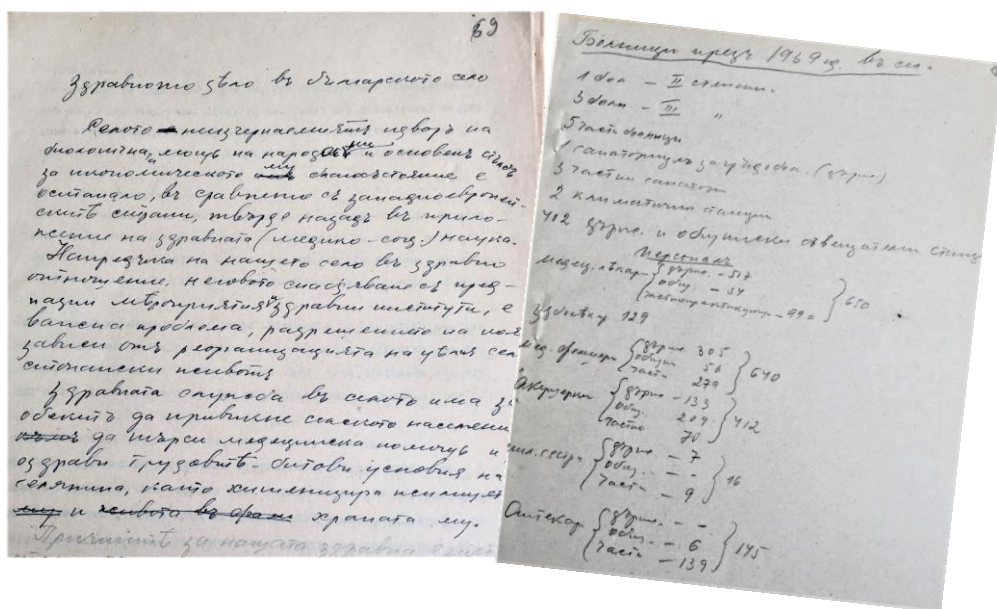 69
Здравното дѣло въ българското село
Селото – неизчерпаемиятъ изворъ на
биологична мощь на народа ни и основенъ стълбъ
за икономическото му благосъстояние е
останало, въ сравнение съ западноевропей-
скитѣ страни, твърде назадъ въ прило-
жение на здравната (медико-соц.) наука.
Напредъка на нашето село въ здравно
отношение, неговото снабдяване съ
мѣроприятия и здравни институти, е
важна проблема, разрешението на
зависи отъ реорганизацията на цѣлия
стопански животъ
Здравната служба въ селото има за
да привикне селското населени
да търси медицинска помощь и
оздрави трудовитѣ-битови условия на
селянина, като хигиенизира жилището
му и живота въ храната му.
за нашата здравна
Болници презъ 1939 г. въ сел.
1 бол. – II степенн.
3 болн. – III "
5 частн болници
1 санаториумъ за гръдобол. (държ.)
3 частни санатор.
2 климатични станции
412 държ. и общински съвещателни станц
Персоналъ
медиц. лѣкар { държ. – 517
общ. – 34
частнопрактикующ – 99 } 650
зъболѣк. 129
мед. фелдшери { държ. 305
общин 56
частн 279 } 640
Акушерки { държ. – 133
общ. 209
частно 70 } 412
мил. сестри { държ. – 7
общ. – -
частн – 9 } 16
Аптекар { държ. – -
общ. – 6
частн – 139 } 145